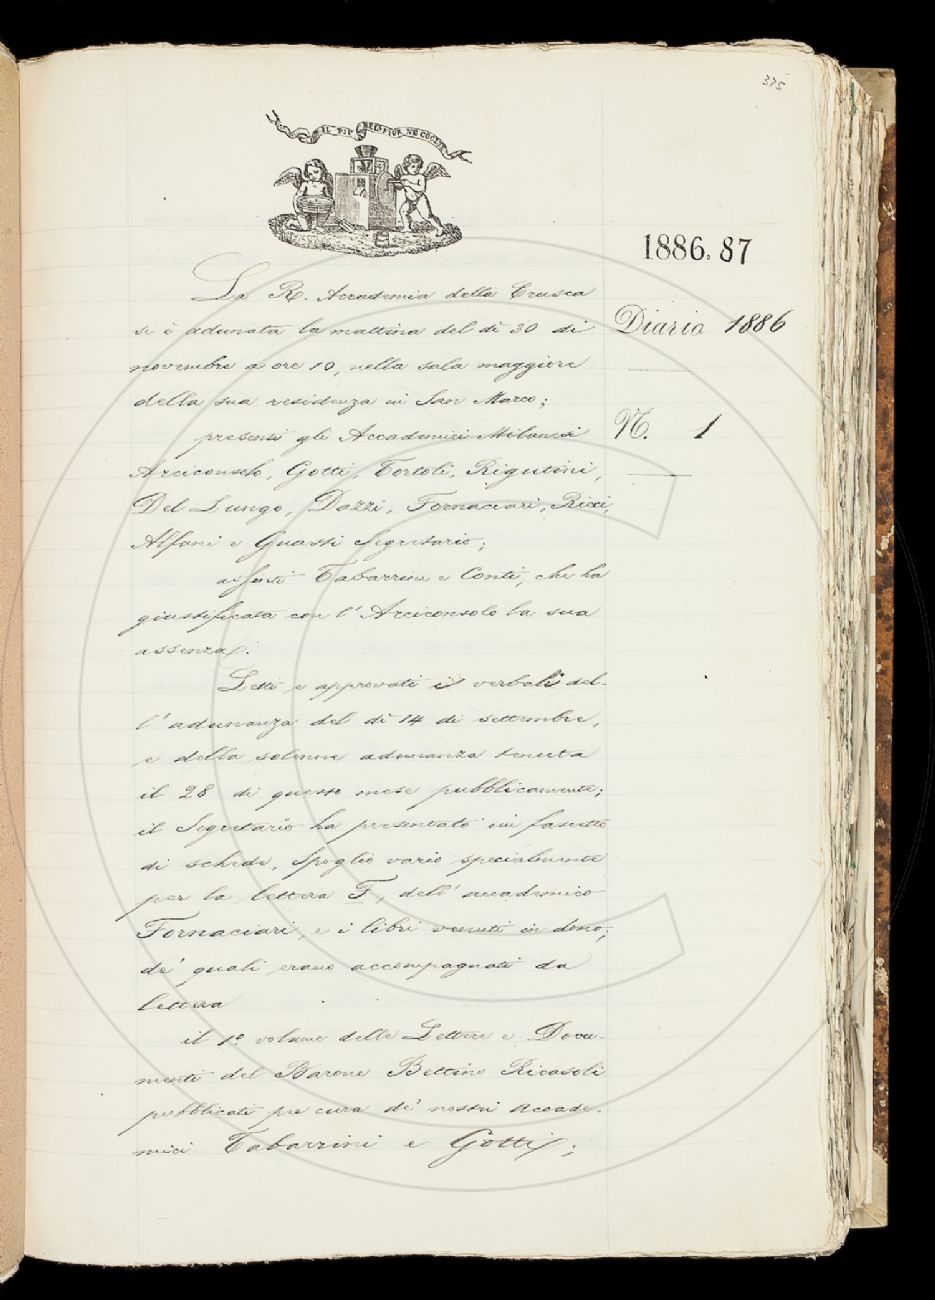 375
IL PIÙ BEL FIOR NE COGLIE
1886. 87
Diario 1886
N. 1
La R. Accademia della Crusca
si è adunata la mattina del dì 30 di
novembre a ore 10, nella sala maggiore
della sua residenza in San Marco;
presenti gli Accademici Milanesi
Arciconsolo, Gotti, Tortoli, Rigutini,
Del Lungo, Dazzi, Fornaciari, Ricci,
Alfani e Guasti Segretario;
assenti Tabarrini e Conti, che ha
giustificata con l'Arciconsolo la sua
assenza.
Letti e approvati i verbali del-
l'adunanza del dì 14 di settembre,
e della solenne adunanza tenuta
il 28 di questo mese pubblicamente;
il Segretario ha presentato un fascetto
di schede, spoglio vario specialmente
per la lettera F, dell'accademico
Fornaciari, e i libri venuti in dono;
de' quali erano accompagnati da
lettera
il 1º volume delle Lettere e Docu-
menti del Barone Bettino Ricasoli
pubblicati per cura de' nostri Accade-
mici Tabarrini e Gotti;